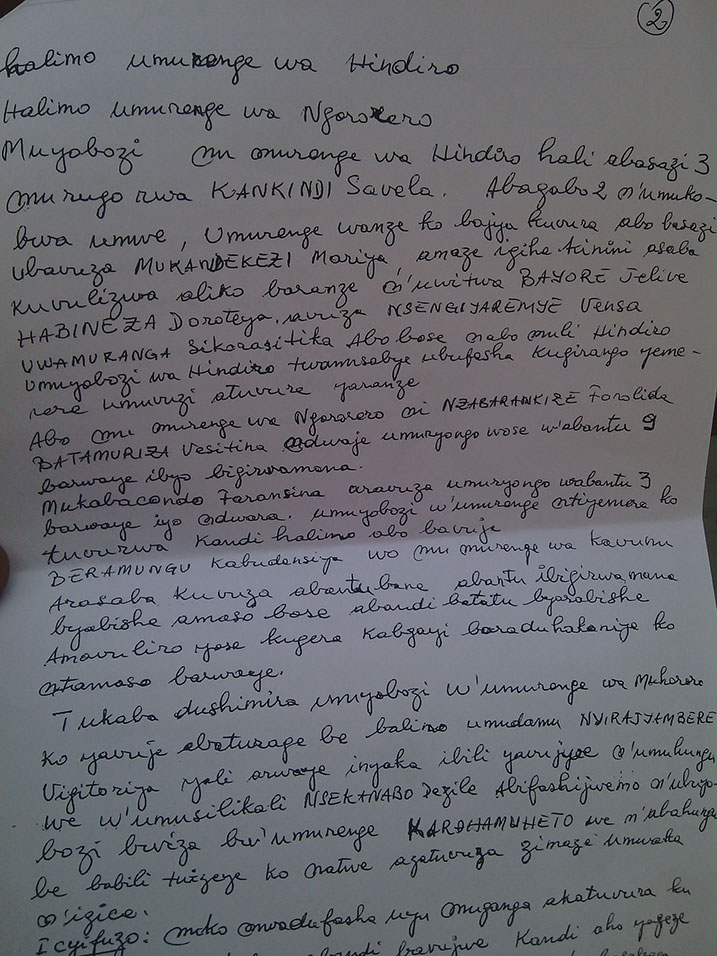 2
halimo umurenge wa Hindiro
Halimo umurenge wa Ngororero
Muyobozi mu murenge wa Hindiro hali abasazi 3
murugo rwa KANKINDI Savela. Abagabo 2 n'umuko-
bwa umwe, Umurenge wanze ko bajya kuvura abo basazi
ubavuza MUKANDEKEZI Mariya, amaze igihe kinini asaba
kuvulizwa aliko baranze n'uwitwa BAYORE Jelive
HABINEZA Doroteya. uvuza NSENGIYAREMYE Vensa
UWAMURANGA Sikorasitika Abo bose nabo muli Hindiro
umuyobozi wa Hindiro twamusabye ubufasha kugirango yeme-
rere umuvuzi atuvura yaranze
Abo mu murenge wa Ngororero ni NZABARANKIZE Forolida
BATAMURIZA Vesitina ndwaje umuryongo wose w'abantu 9
barwaye ibyo bigirwamana.
Mukabacondo Faransina aravuza umuryongo wabantu 3
barwaye iyo ndwara. umuyobozi w'umurenge ntiyemera ko
tuvurwa kandi halimo abo bavuje
BERAMUNGU Kabudensiya wo mu murenge wa Kavumu
Arasaba kuvuza abantu bane abantu ibigirwamana
byabishe amaso bose abandi batatu byarabishe
Amavuliro yose kugera Kabgayi baraduhakaniye ko
ntamaso barwaye.
Tukaba dushimira umuyobozi w'umurenge wa Muhororo
ko yavuje abaturage be balimo umudamu NYIRAJYAMBERE
Vigitoriya yali arwaye inyaka ibili yavujije n'umuhungu
we w'umusilikali NSEKANABO Dezile Abifashijwemo n'ubuyo-
bozi bwiza bw'umurenge KAROHAMUHETO we n'abahungu
be babili tuzeze ko natwe azatuvuza zimaze umwaka
n'igice.
Icyifuzo: moko mwadufasha uyu muganga akatuvura ku
abandi bavujwe kandi aho yageze